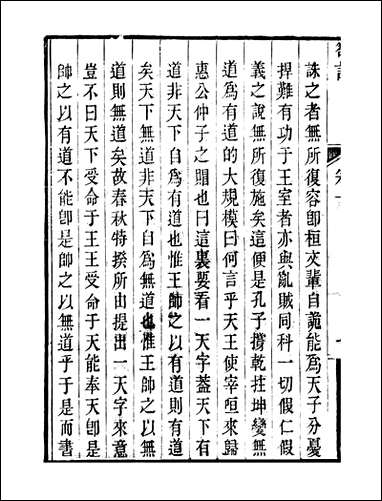 誅之者無所復容卽桓文輩自詭能爲天子分憂
捍難有功于王室者亦與亂賊同科一切假仁假
義之說無所復施矣這便是孔子撐乾拄坤變無
道爲有道的大規模曰何言乎天王使宰咺來歸
惠公仲子之賵也曰這裏要看一天字蓋天下有
道非天下自爲有道也惟王帥之以有道則有道
矣天下無道非天下自爲無道也惟王帥之以無
道則無道矣故春秋特揆所由提出一天字來意
豈不曰天下受命于王王受命于天能奉天卽是
帥之以有道不能卽是帥之以無道乎于是而書